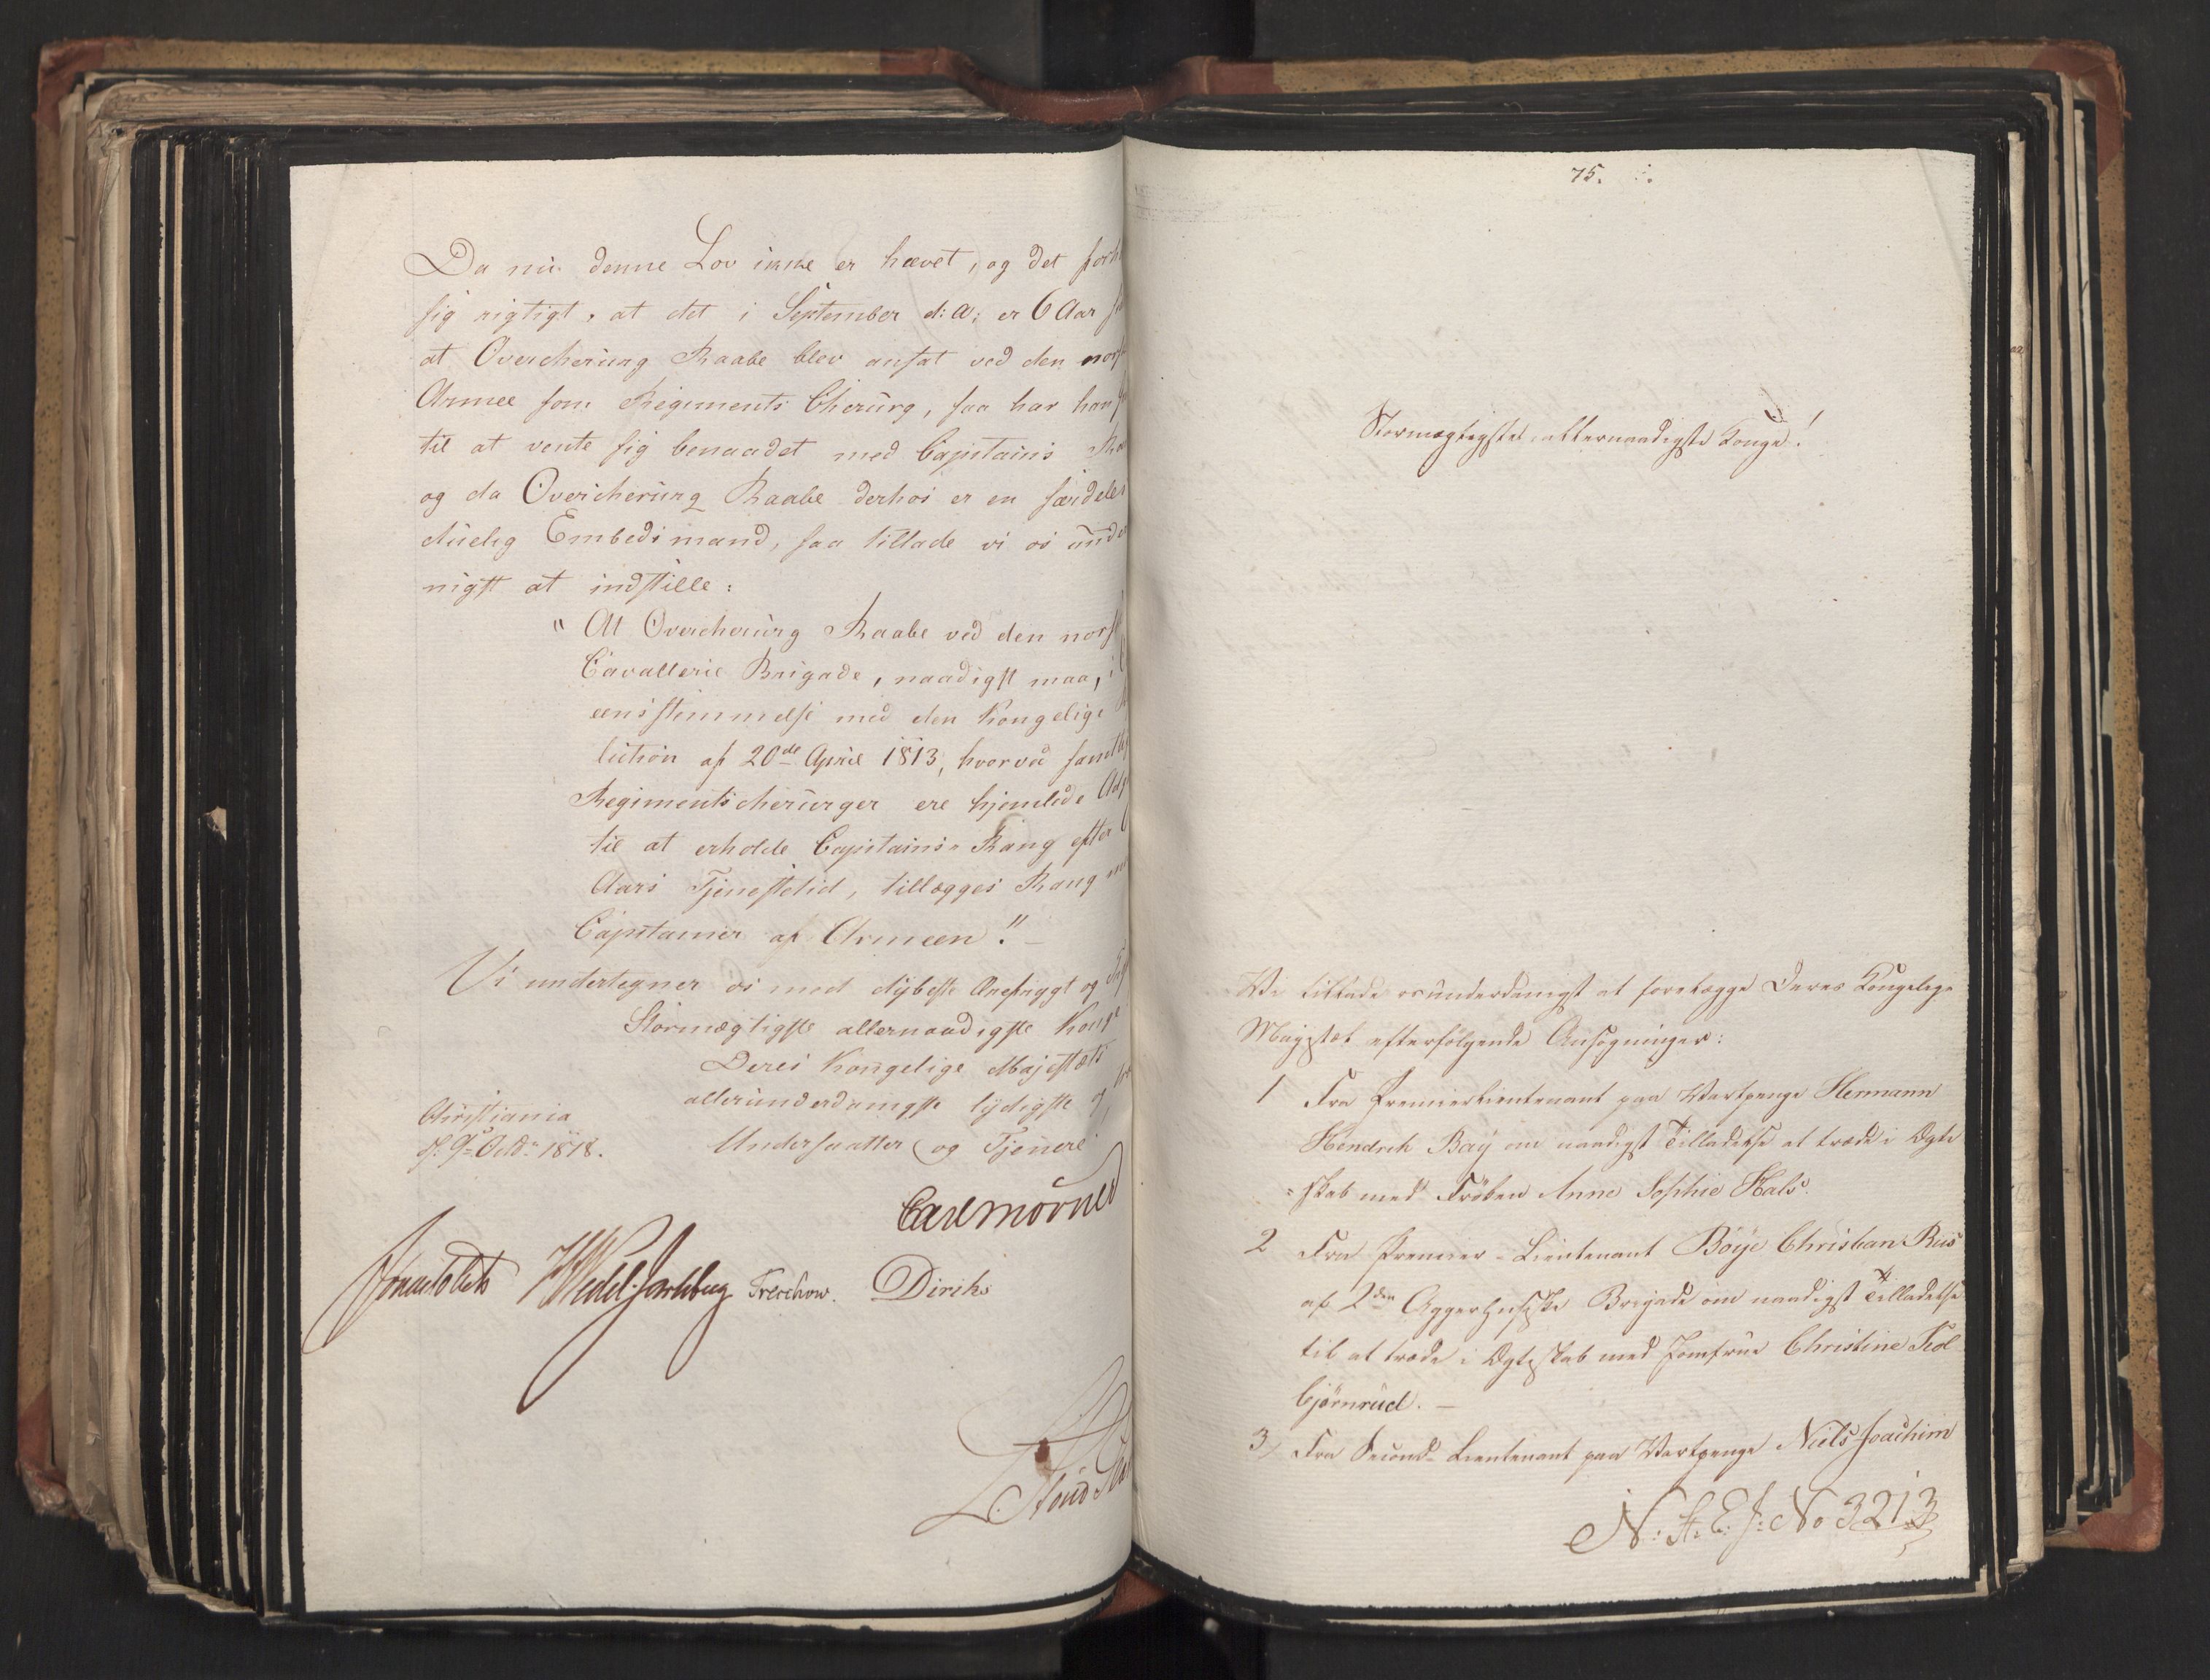 Da nu denne Lov ikke er hævet, og det forh
sig rigtigt, at det i September d: A: er 6 Aar
at Overcherurg Raabe blev ansat ved den nors
Armee som Regiments Cherurg, saa har han
til at vente sig benaadet med Capitains Ra
og da Overcherurg Raabe derhos er en særdeles
duelig Embedsmand, saa tillade vi os under
nigst at indstille:
"At Overcherurg Raabe ved den norsk
Cavallerie Brigade, naadigst maa, i
eensstemmelse med den Kongelige
lution af 20de April 1813, hvorved samtl
Regimentscherurger ere hjemlede Adg
til at erholde Capitains-Rang efter
Aars Tjenestetid, tillægges Rang
Capitainer af Armeen". –
Vi undertegner os med dybeste Ærefrygt og
Stormægtigste allernaadigste Konge
Deres Kongelige Majestæts
allerunderdanigste lydigste
Christiania
d. 9de Octbr 1818.
Undersaatter og Tjenere
Carl Mörner
Jonas Collett HWedel-Jarlsberg Treschow. Diriks
75.
Stormægtigste, allernaadigste Konge!
Vi tillade os underdanigst at forelægge Deres Kongelige
Majestæt efterfølgende Ansøgninger:
1 Fra Premierlieutenant paa Vartpenge Hermann
Hendrik Bay om naadigst Tilladelse at træde i Ægte
=skab med Frøken Anne Sophie Hals.
2 Fra Premier-Lieutenant Böije Christian Riis
af 2den Aggerhusiske Brigade om naadigst Tilladelse
til at træde i Ægteskab med Jomfrue Christine Kol
bjørnrud. –
3, Fra Second-Lieutenant paa Vartpenge Niels Joachim
N: St: E: J: No 3213